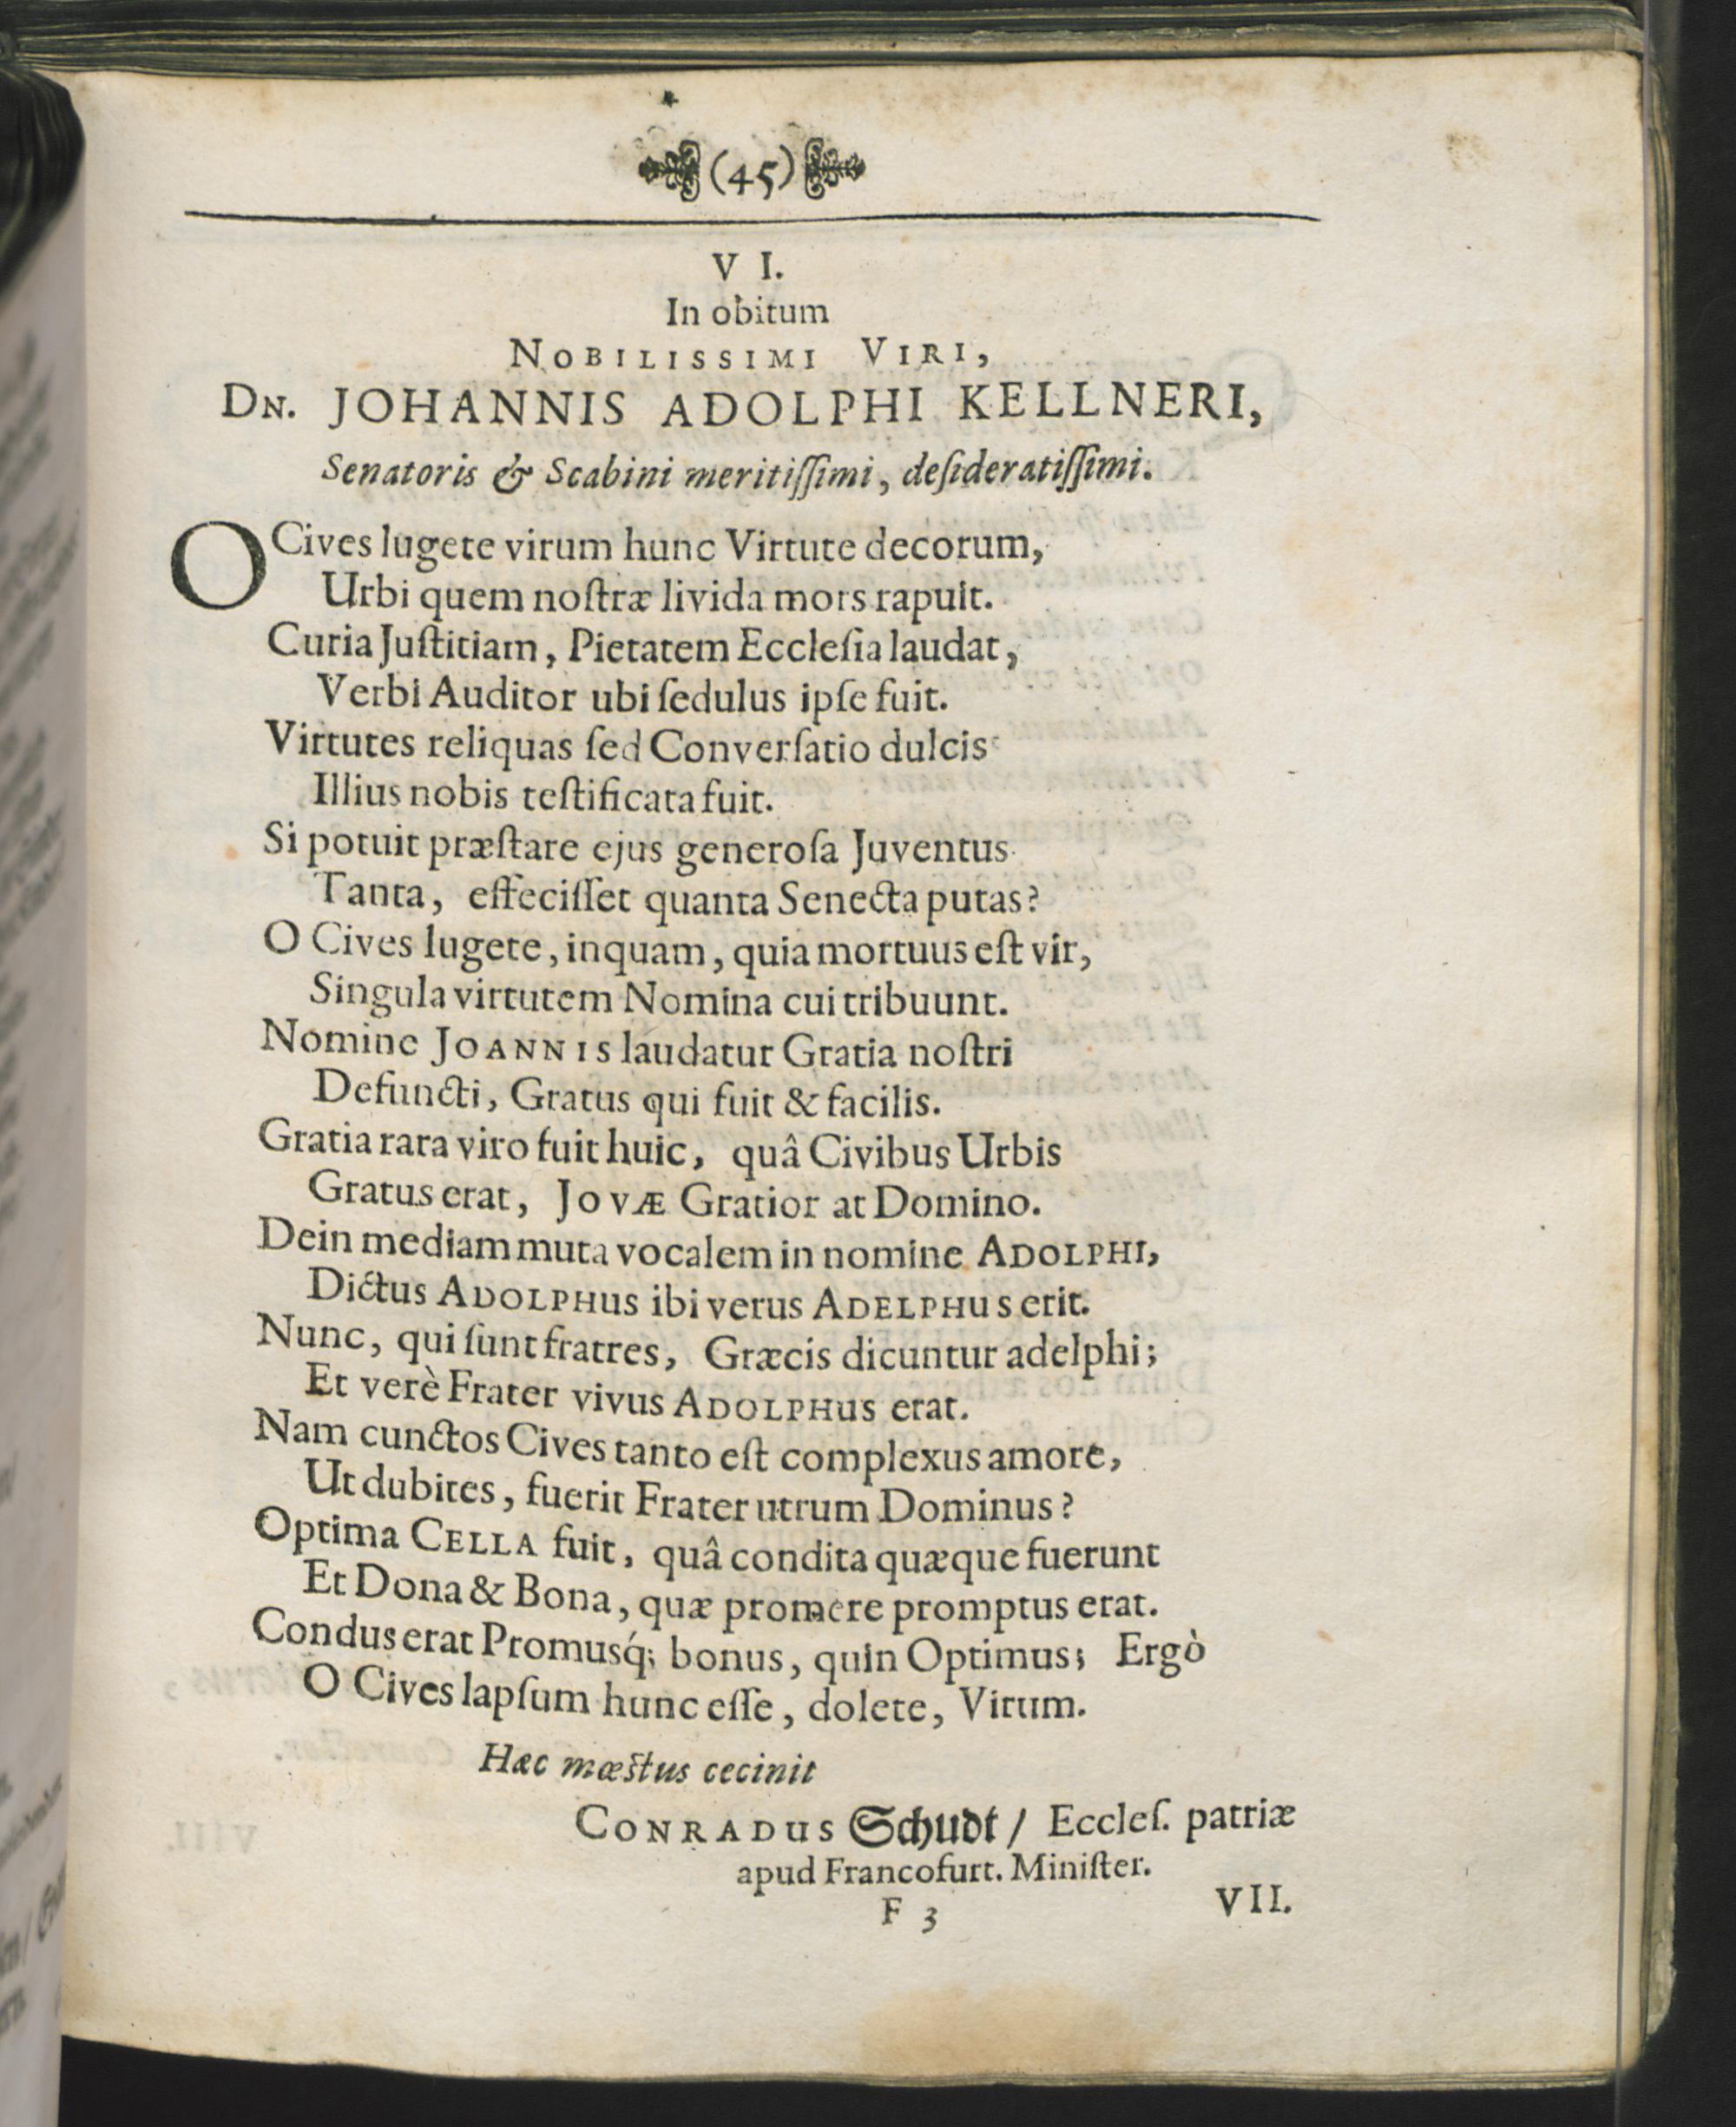 (45)
V I.
In obitum
NOBILISSIMI VIRI,
DN. JOHANNIS ADOLPHI KELLNERI,
Senatoris & Scabini meritiſſimi, deſideratiſſimi.
O Cives lugete virum hunc Virtute decorum,
Urbi quem noſtræ livida mors rapuit.
Curia Juſtitiam, Pietatem Eccleſia laudat,
Verbi Auditor ubi ſedulus ipſe fuit.
Virtutes reliquas ſed Converſatio dulcis
Illius nobis teſtificata fuit.
Si potuit præſtare ejus generoſa Juventus
Tanta, effeciſſet quanta Senecta putas?
O Cives lugete, inquam, quia mortuus eſt vir,
Singula virtutem Nomina cui tribuunt.
Nomine JOANNIS laudatur Gratia noſtri
Defuncti, Gratus qui fuit & facilis.
Gratia rara viro fuit huic, quâ Civibus Urbis
Gratus erat, JOVÆ Gratior at Domino.
Dein mediam muta vocalem in nomine ADOLPHI,
Dictus ADOLPHUS ibi verus ADELPHUS erit.
Nunc, qui ſunt fratres, Græcis dicuntur adelphi;
Et verè Frater vivus ADOLPHUS erat.
Nam cunctos Cives tanto eſt complexus amore,
Ut dubites, fuerit Frater utrum Dominus?
Optima CELLA fuit, quâ condita quæque fuerunt
Et Dona & Bona, quæ promere promptus erat.
Condus erat Promusq́; bonus, quin Optimus; Ergò
O Cives lapſum hunc eſſe, dolete, Virum.
Hæc mœſtus cecinit
CONRADUS Schudt / Eccleſ. patriæ
apud Francofurt. Miniſter.
F 3
VII.